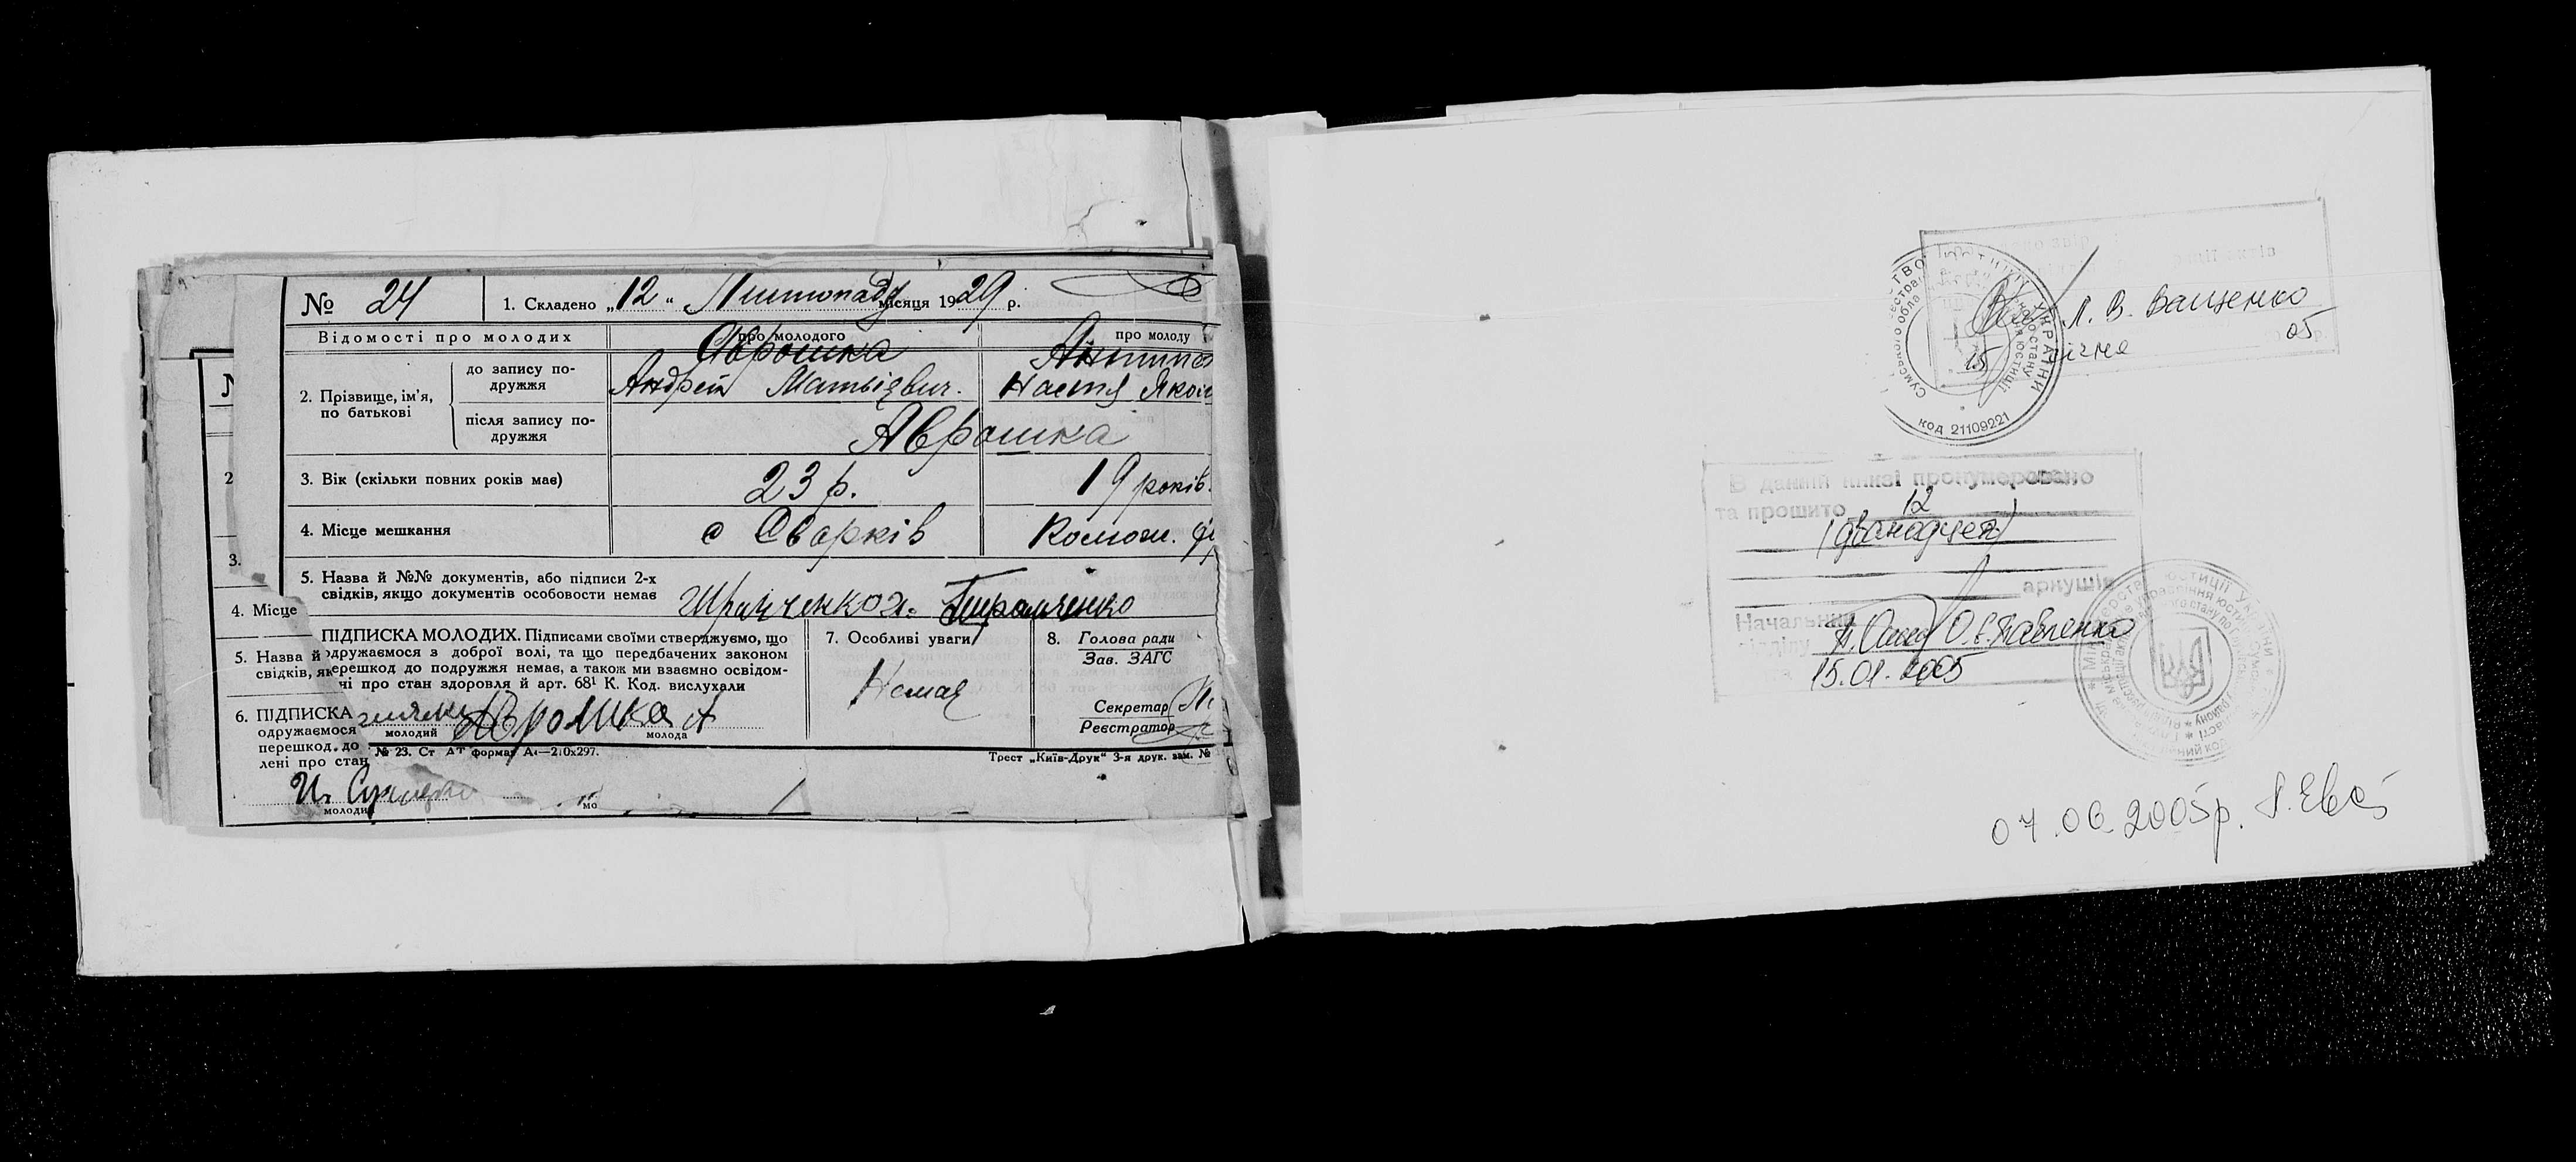 № 24 1. Складено „12“ Листопада місяця 1929 р.
Відомості про молодих про молодого про молоду
Аврошка
2. Прізвище, ім'я, по батькові
до запису подружжя Андрей Матвієвич. Настя
після запису по-
дружжя
Аврошка
3. Вік (скільки повних років має) 23 р. 19 років.
4. Місце мешкання с Сварків
5. Назва й №№ документів, або підписи 2-х
свідків, якщо документів особовости немає
ПІДПИСКА МОЛОДИХ. Підписами своїми стверджуємо, що
одружаємося з доброї волі, та що передбачених законом
перешкод до подружжя немає, а також ми взаємно освідом-
чі про стан здоровля й арт. 68¹ К. Код. вислухали
Аврошка А
молодий молода
7. Особливі уваги
Немає
8. Голова ради
Зав. ЗАГС
Секретар
Реєстратор
№ 23. Ст. формат А4—210х297.
Трест „Київ-Друк“ 3-я друк. зам. №
2
3.
4. Місце
5. Назва й
свідків, як
6. ПІДПИСКА
одружаємося
перешкод до
лені про стан
молодий
Л. В. Ващенко
15 січня 05 р.
УКРАЇНИ
КОД 21109221
В даній книзі пронумеровано
та прошито 12
(дванадцять)
аркушів
Начальник
відділу О.Є. Павленко
15.01.2005
07.06.2005р.